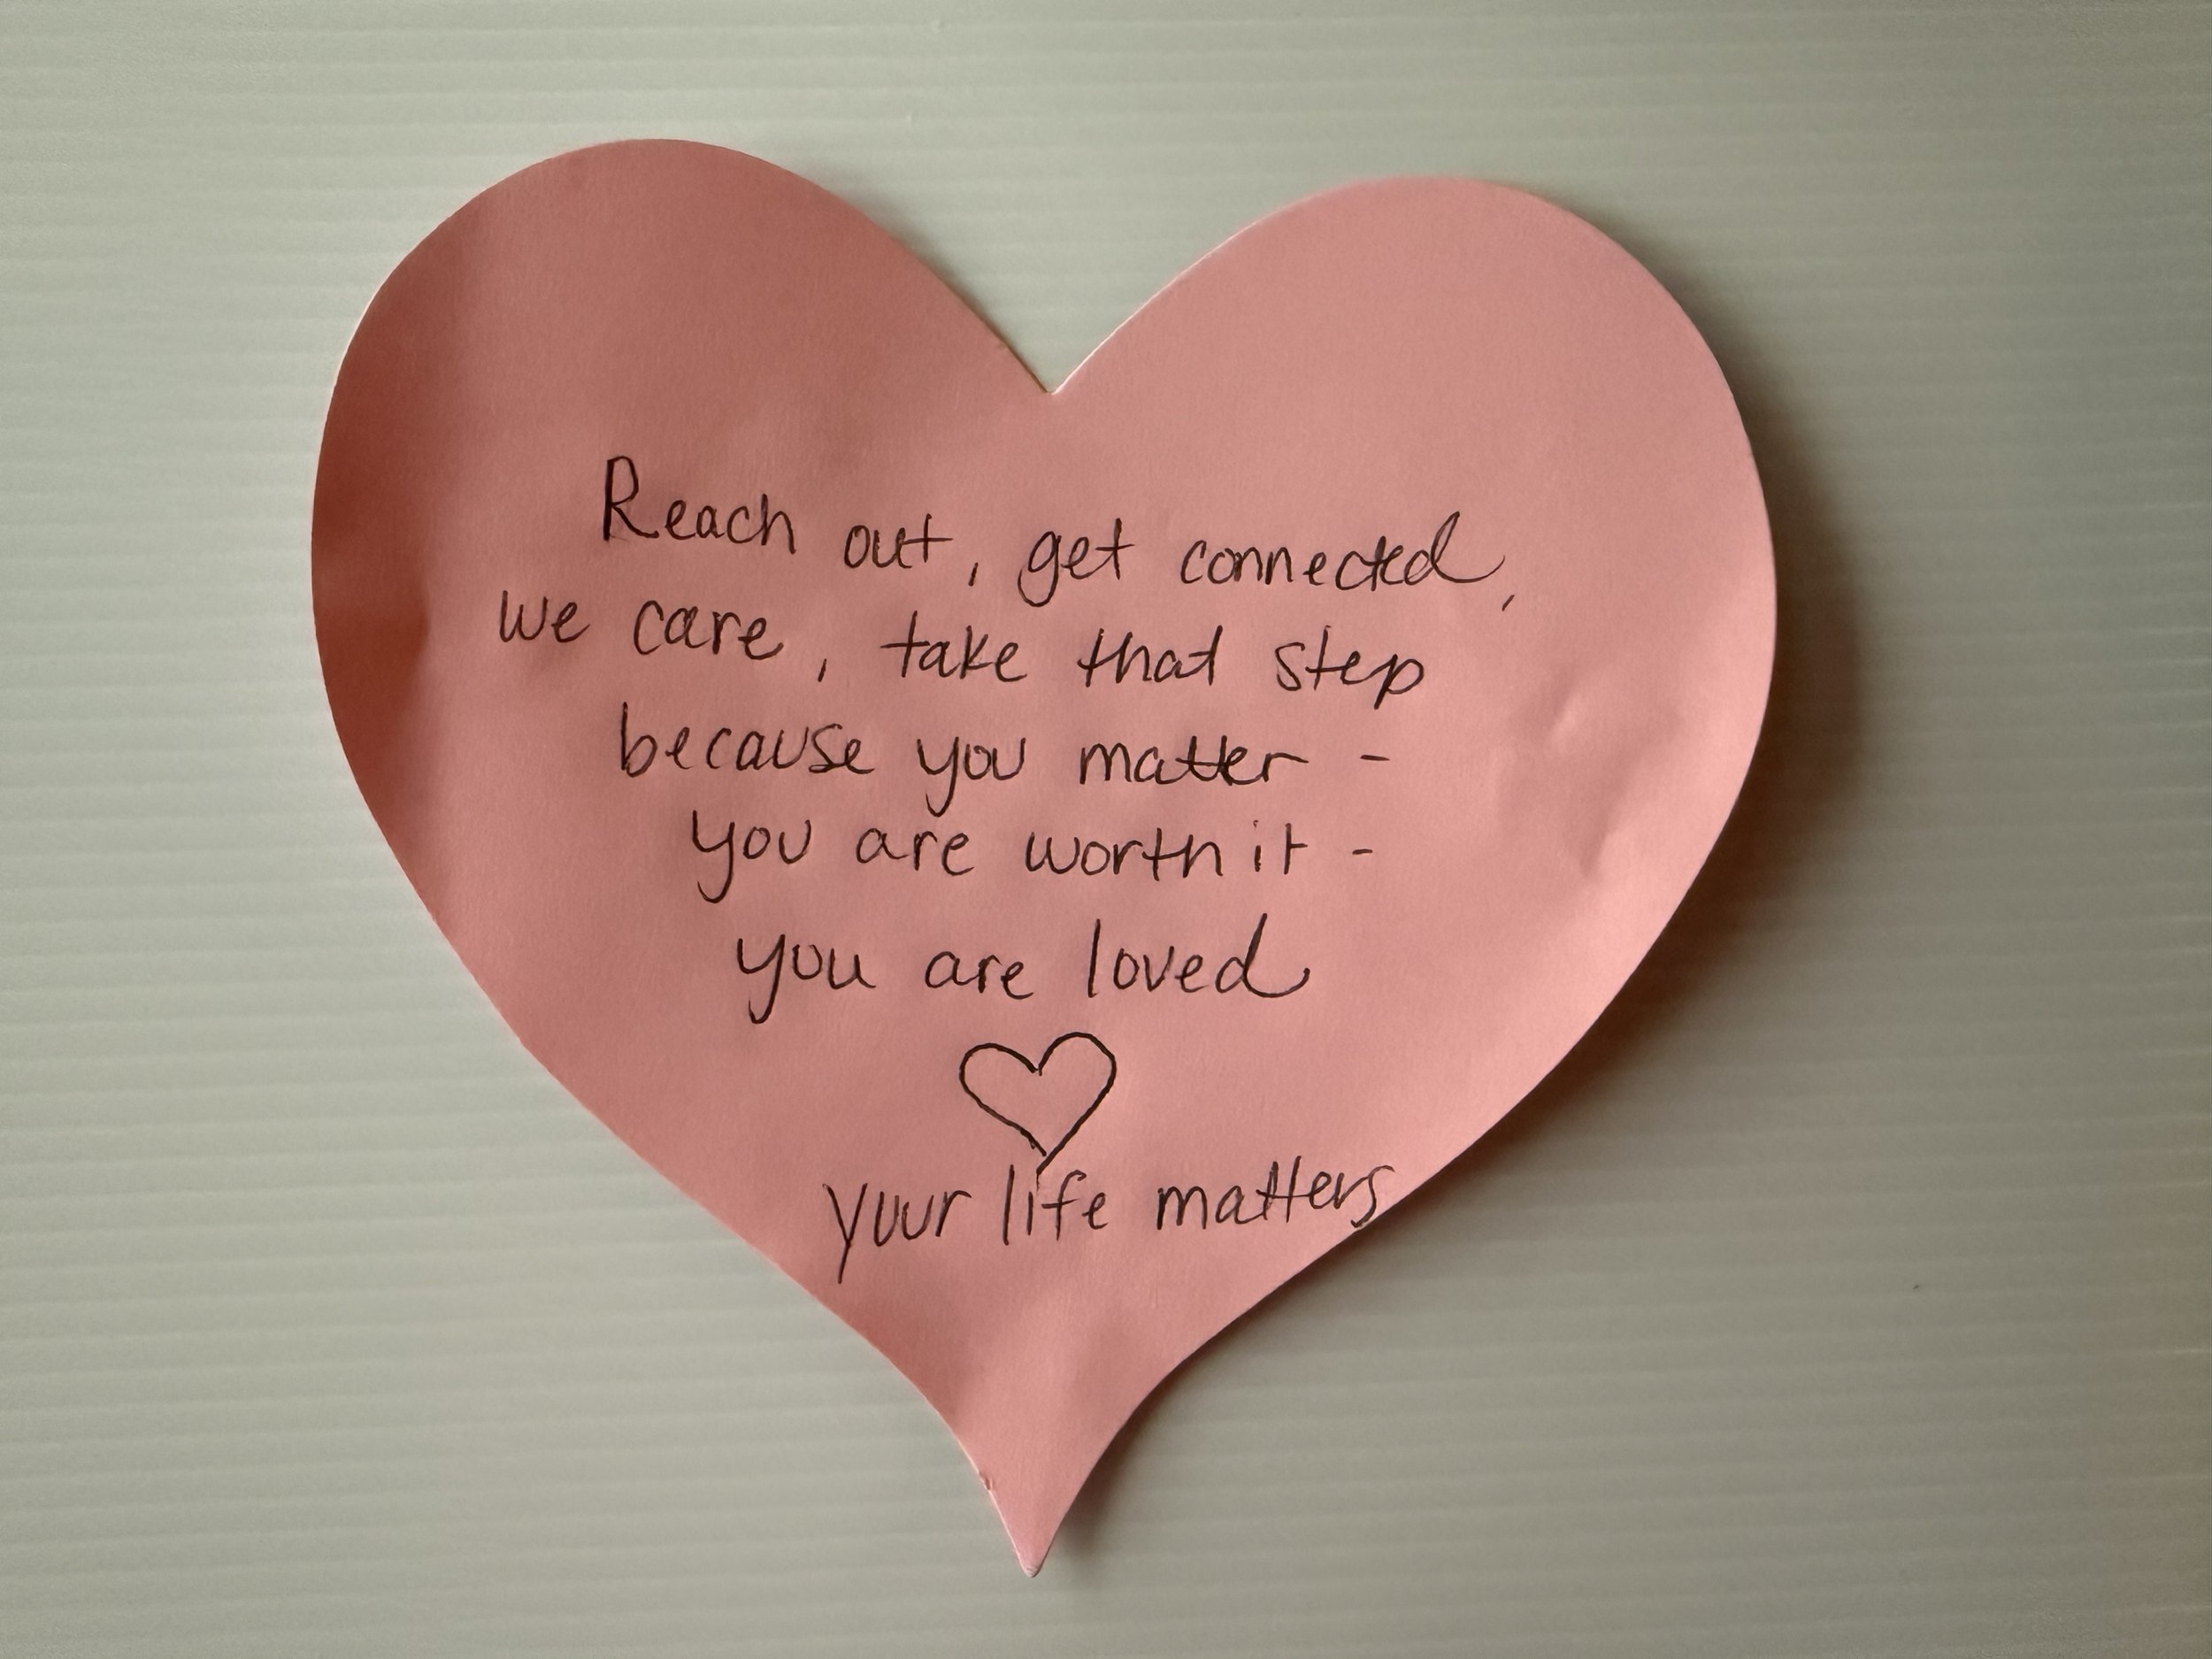 Reach out, get connected,
we care, take that step
because you matter -
you are worth it -
you are loved
your life matters